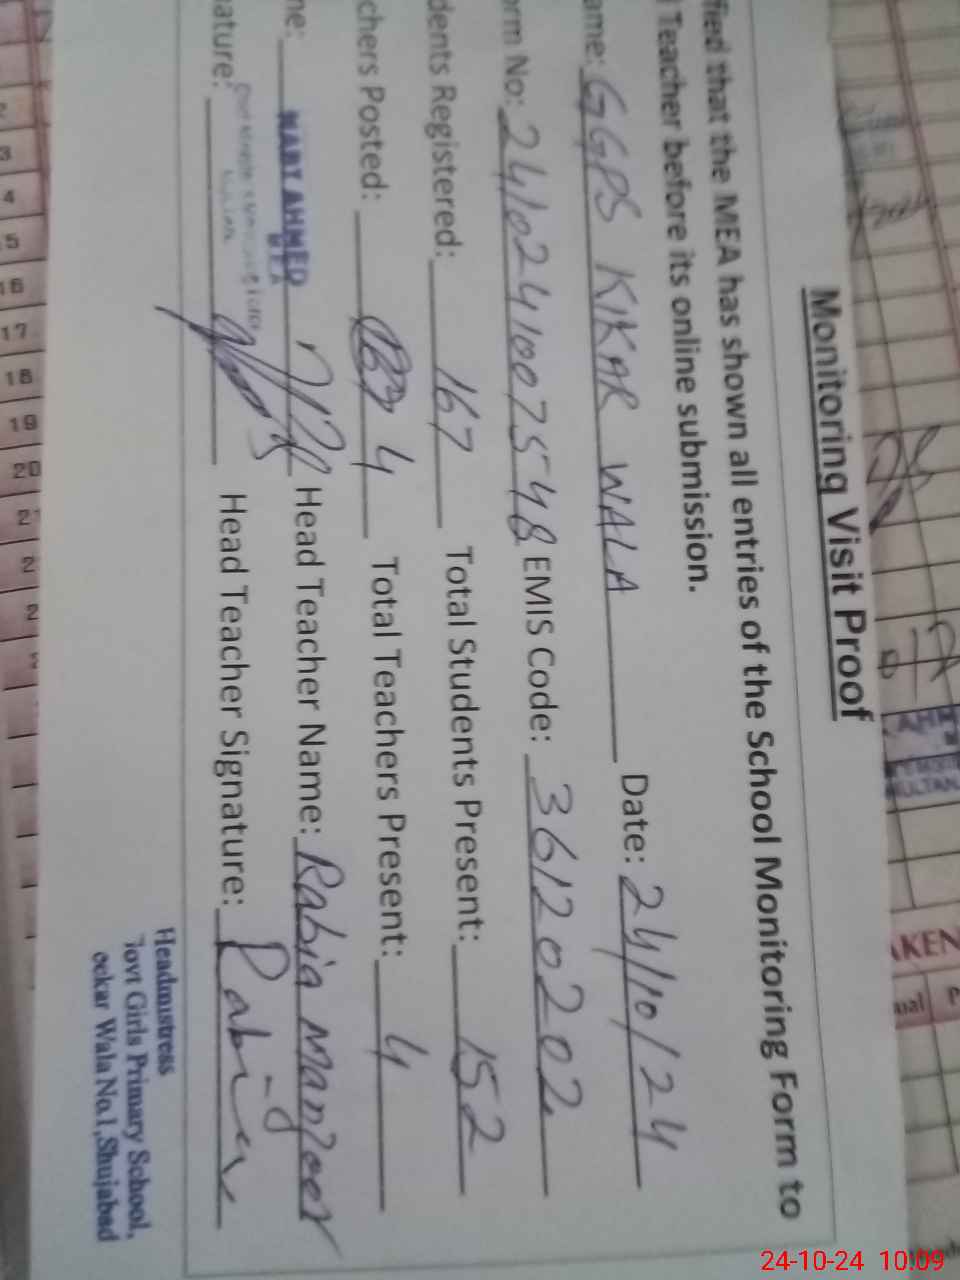 Monitoring Visit Proof
fied that the MEA has shown all entries of the School Monitoring Form to
Teacher before its online submission.
ame: GGPS KIKAR WALA Date: 24/10/24
orm No: 24102410075548 EMIS Code: 36120202
dents Registered: 167 Total Students Present: 152
chers Posted: 4 Total Teachers Present: 4
me: NABY AHMED Head Teacher Name: Rabia Manzoor
MEA
ature: Head Teacher Signature: Rabia
Headmistress
Govt Girls Primary School,
ockar Wala No.1, Shujabad
AHM
ULTAN
AKEN
ual P
3
4
5
16
17
18
19
20
24-10-24 10:09